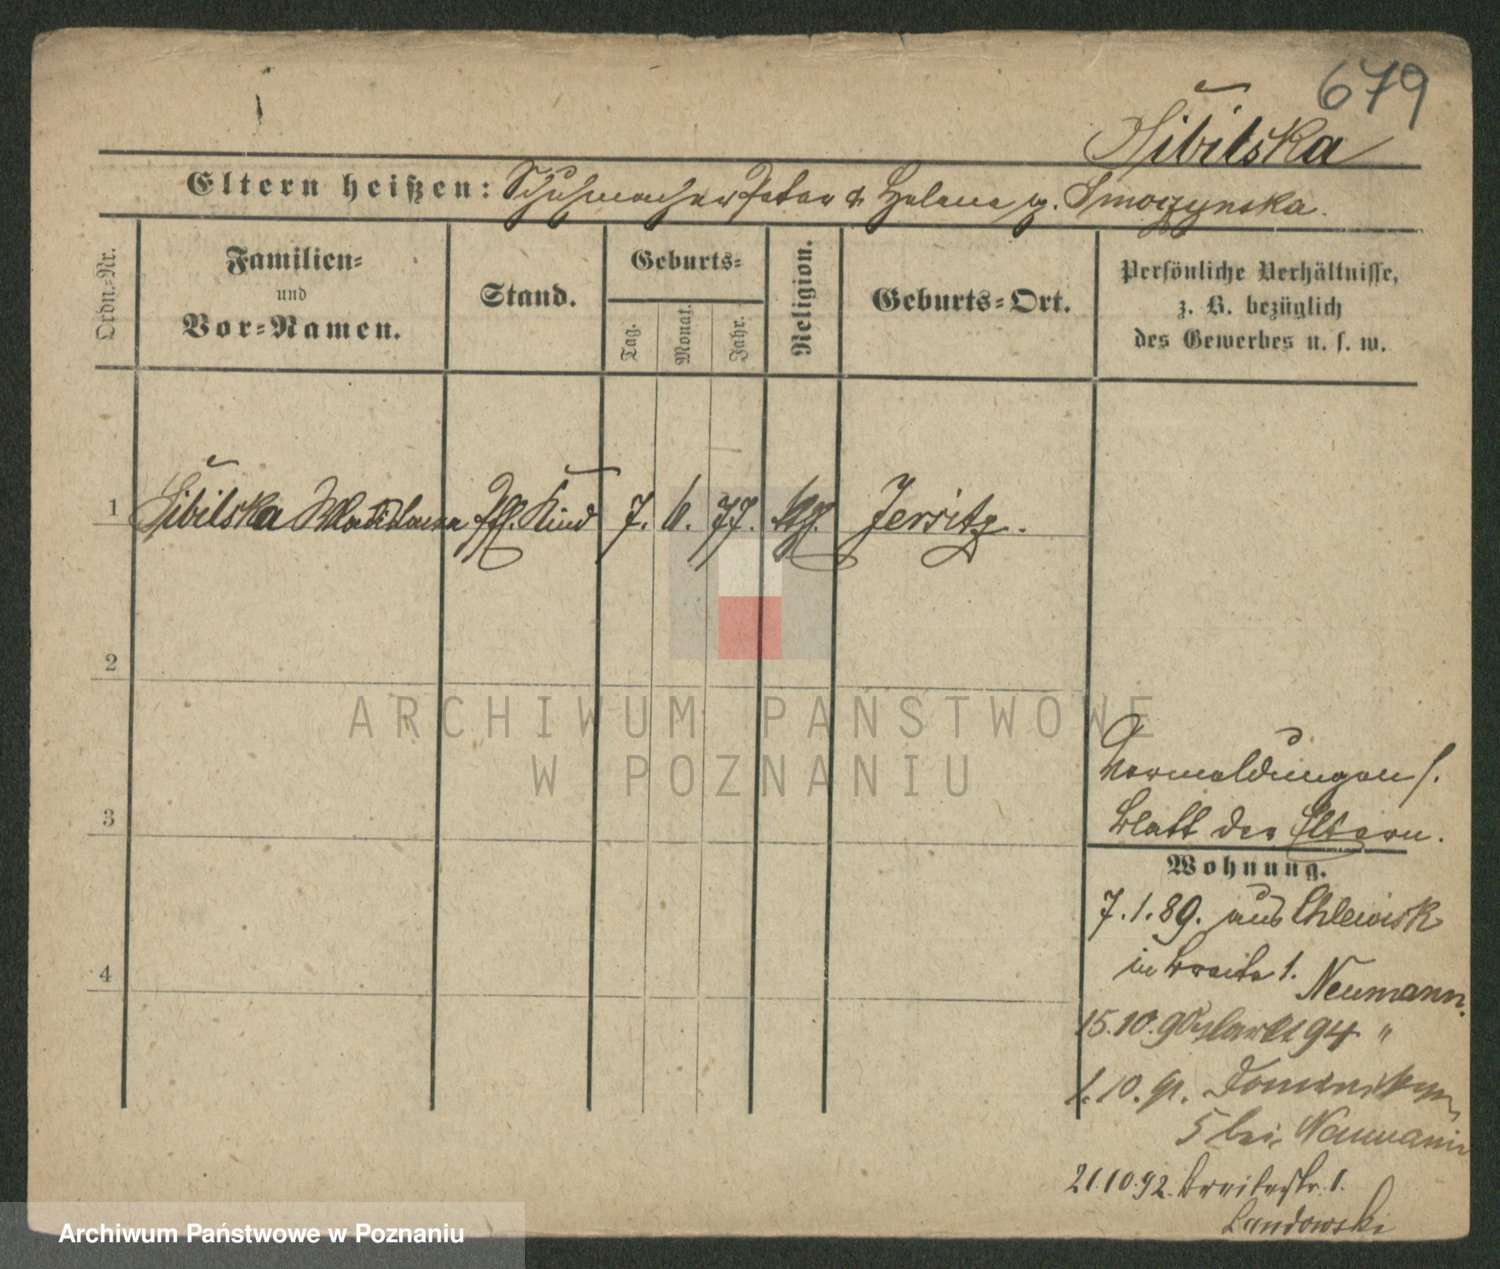 679
Sibilska
Eltern heißen: Schuhmacher Peter & Helena g. Smoczynska.
Ordn.-Nr.
Familien-
und
Vor-Namen.
Stand.
Geburts-
Tag.
Monat.
Jahr.
Religion.
Geburts-Ort.
Persönliche Verhältnisse,
z. B. bezüglich
des Gewerbes u. s. w.
1 Sibilska Wladislawa Pfl. Kind 7. 6. 77. kth. Jersitz.
2
3
4
Vermeldungen s.
Blatt der Eltern.
Wohnung.
7.1.89. aus Chlewisk
in Breite 1. Neumann.
15.10.90 Markt 94 "
1.10.91. Dominikan
5 bei Neumann
21.10.92. Breitestr. 1.
Landowski
ARCHIWUM PAŃSTWOWE
W POZNANIU
Archiwum Państwowe w Poznaniu